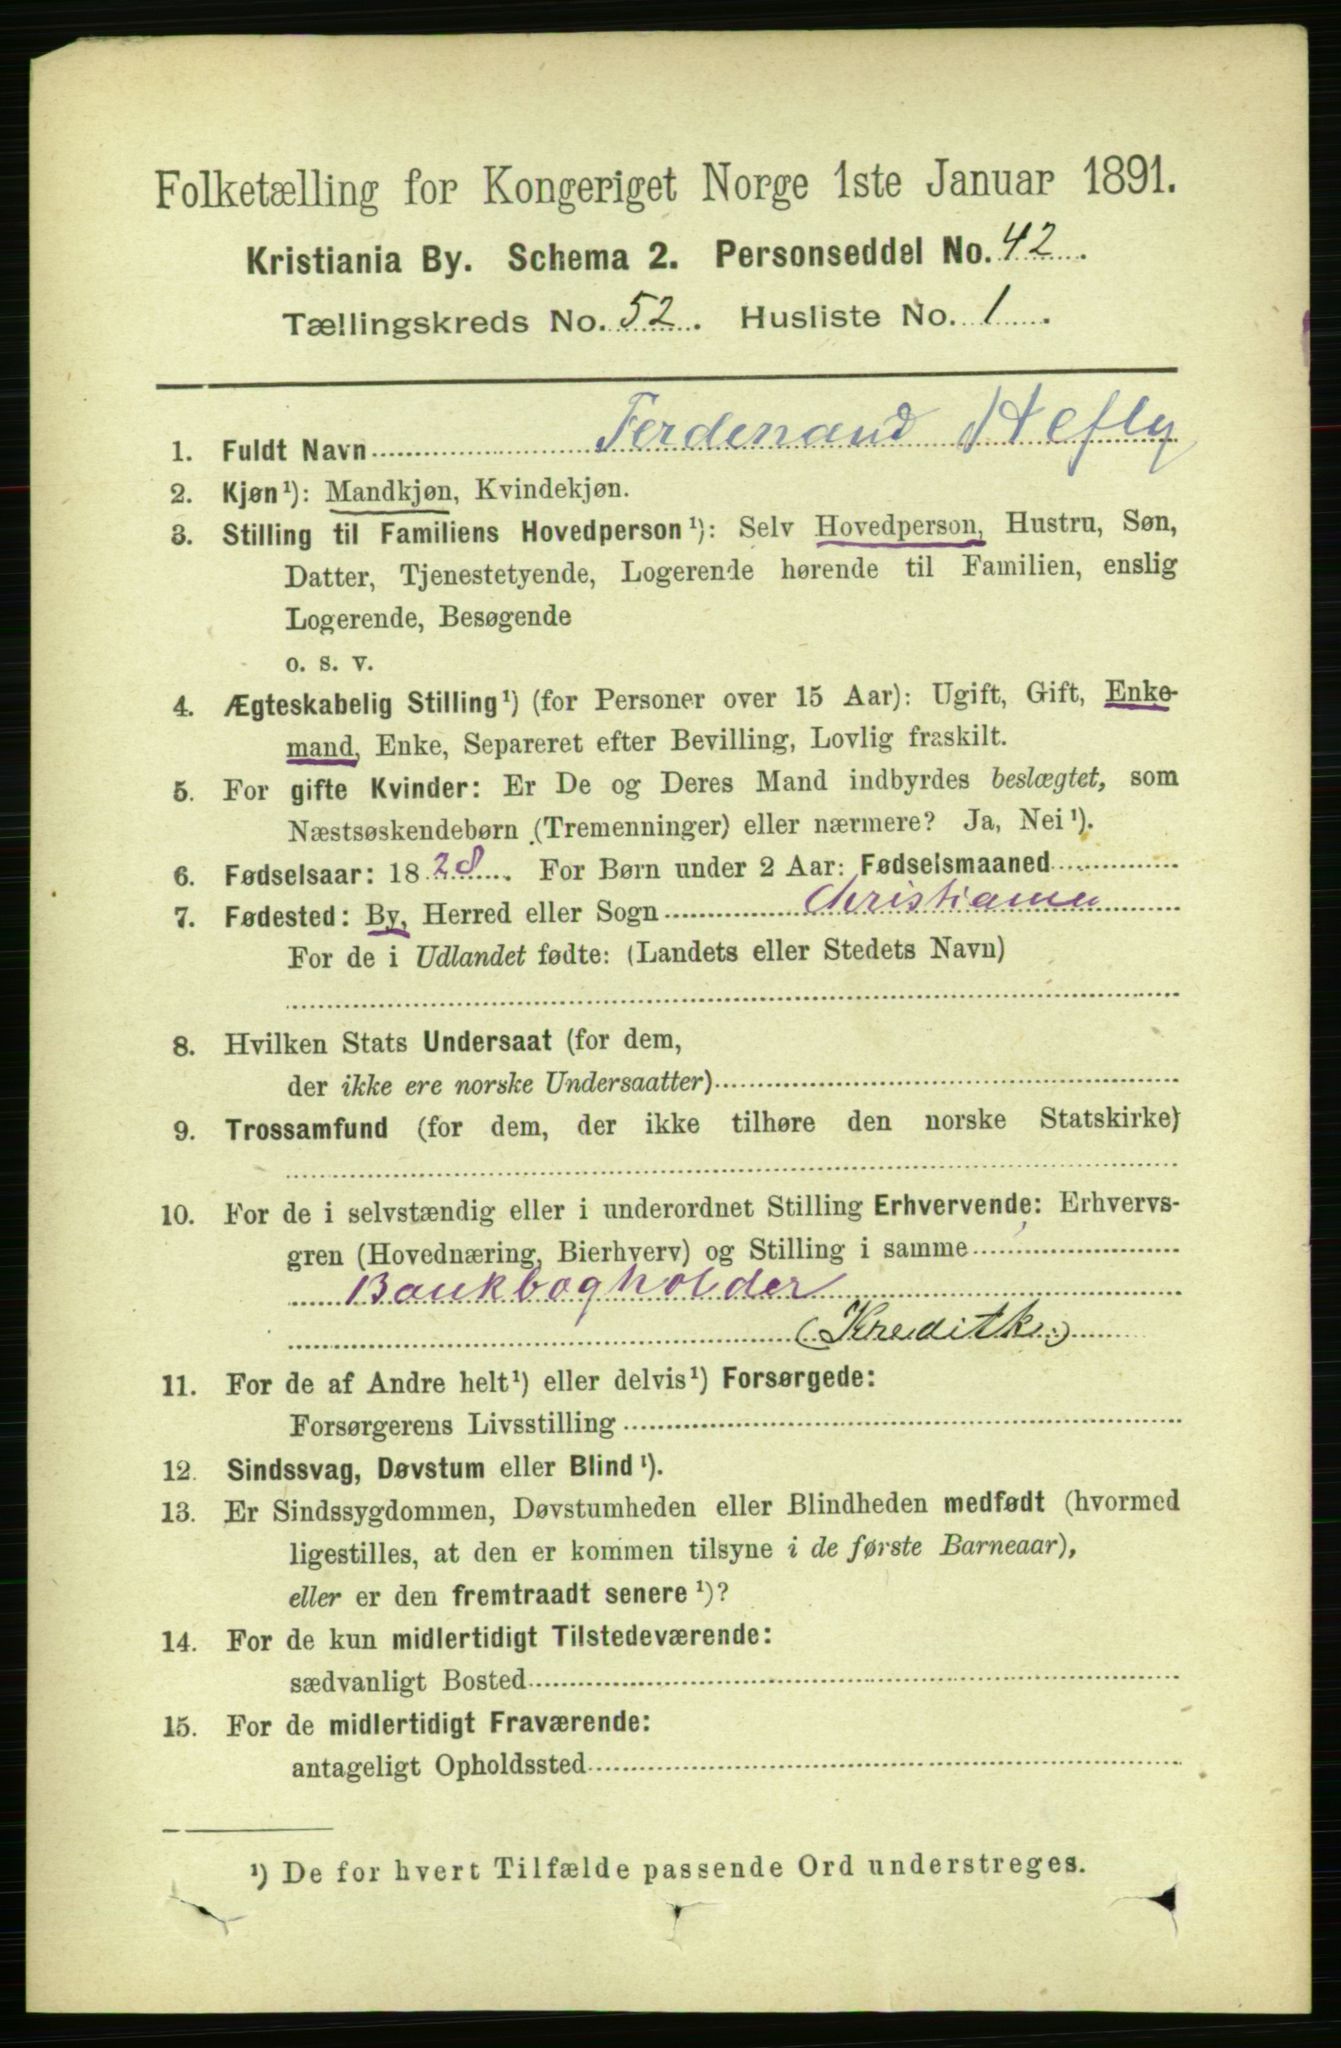 Folketælling for Kongeriget Norge 1ste Januar 1891.
Kristiania By. Schema 2. Personseddel No. 42.
Tællingskreds No. 52. Husliste No. 1.
1. Fuldt Navn Ferdenand Hefly
2. Kjøn¹): Mandkjøn, Kvindekjøn.
3. Stilling til Familiens Hovedperson¹): Selv Hovedperson, Hustru, Søn,
Datter, Tjenestetyende, Logerende hørende til Familien, enslig
Logerende, Besøgende
o. s. v.
4. Ægteskabelig Stilling¹) (for Personer over 15 Aar): Ugift, Gift, Enke-
mand, Enke, Separeret efter Bevilling, Lovlig fraskilt.
5. For gifte Kvinder: Er De og Deres Mand indbyrdes beslægtet, som
Næstsøskendebørn (Tremenninger) eller nærmere? Ja, Nei¹).
6. Fødselsaar: 1828. For Børn under 2 Aar: Fødselsmaaned
7. Fødested: By, Herred eller Sogn Christiania
For de i Udlandet fødte: (Landets eller Stedets Navn)
8. Hvilken Stats Undersaat (for dem,
der ikke ere norske Undersaatter)
9. Trossamfund (for dem, der ikke tilhøre den norske Statskirke)
10. For de i selvstændig eller i underordnet Stilling Erhvervende: Erhvervs-
gren (Hovednæring, Bierhverv) og Stilling i samme
Bankbogholder
(Kreditk.)
11. For de af Andre helt¹) eller delvis¹) Forsørgede:
Forsørgerens Livsstilling
12. Sindssvag, Døvstum eller Blind¹).
13. Er Sindssygdommen, Døvstumheden eller Blindheden medfødt (hvormed
ligestilles, at den er kommen tilsyne i de første Barneaar),
eller er den fremtraadt senere¹)?
14. For de kun midlertidigt Tilstedeværende:
sædvanligt Bosted
15. For de midlertidigt Fraværende:
antageligt Opholdssted
¹) De for hvert Tilfælde passende Ord understreges.